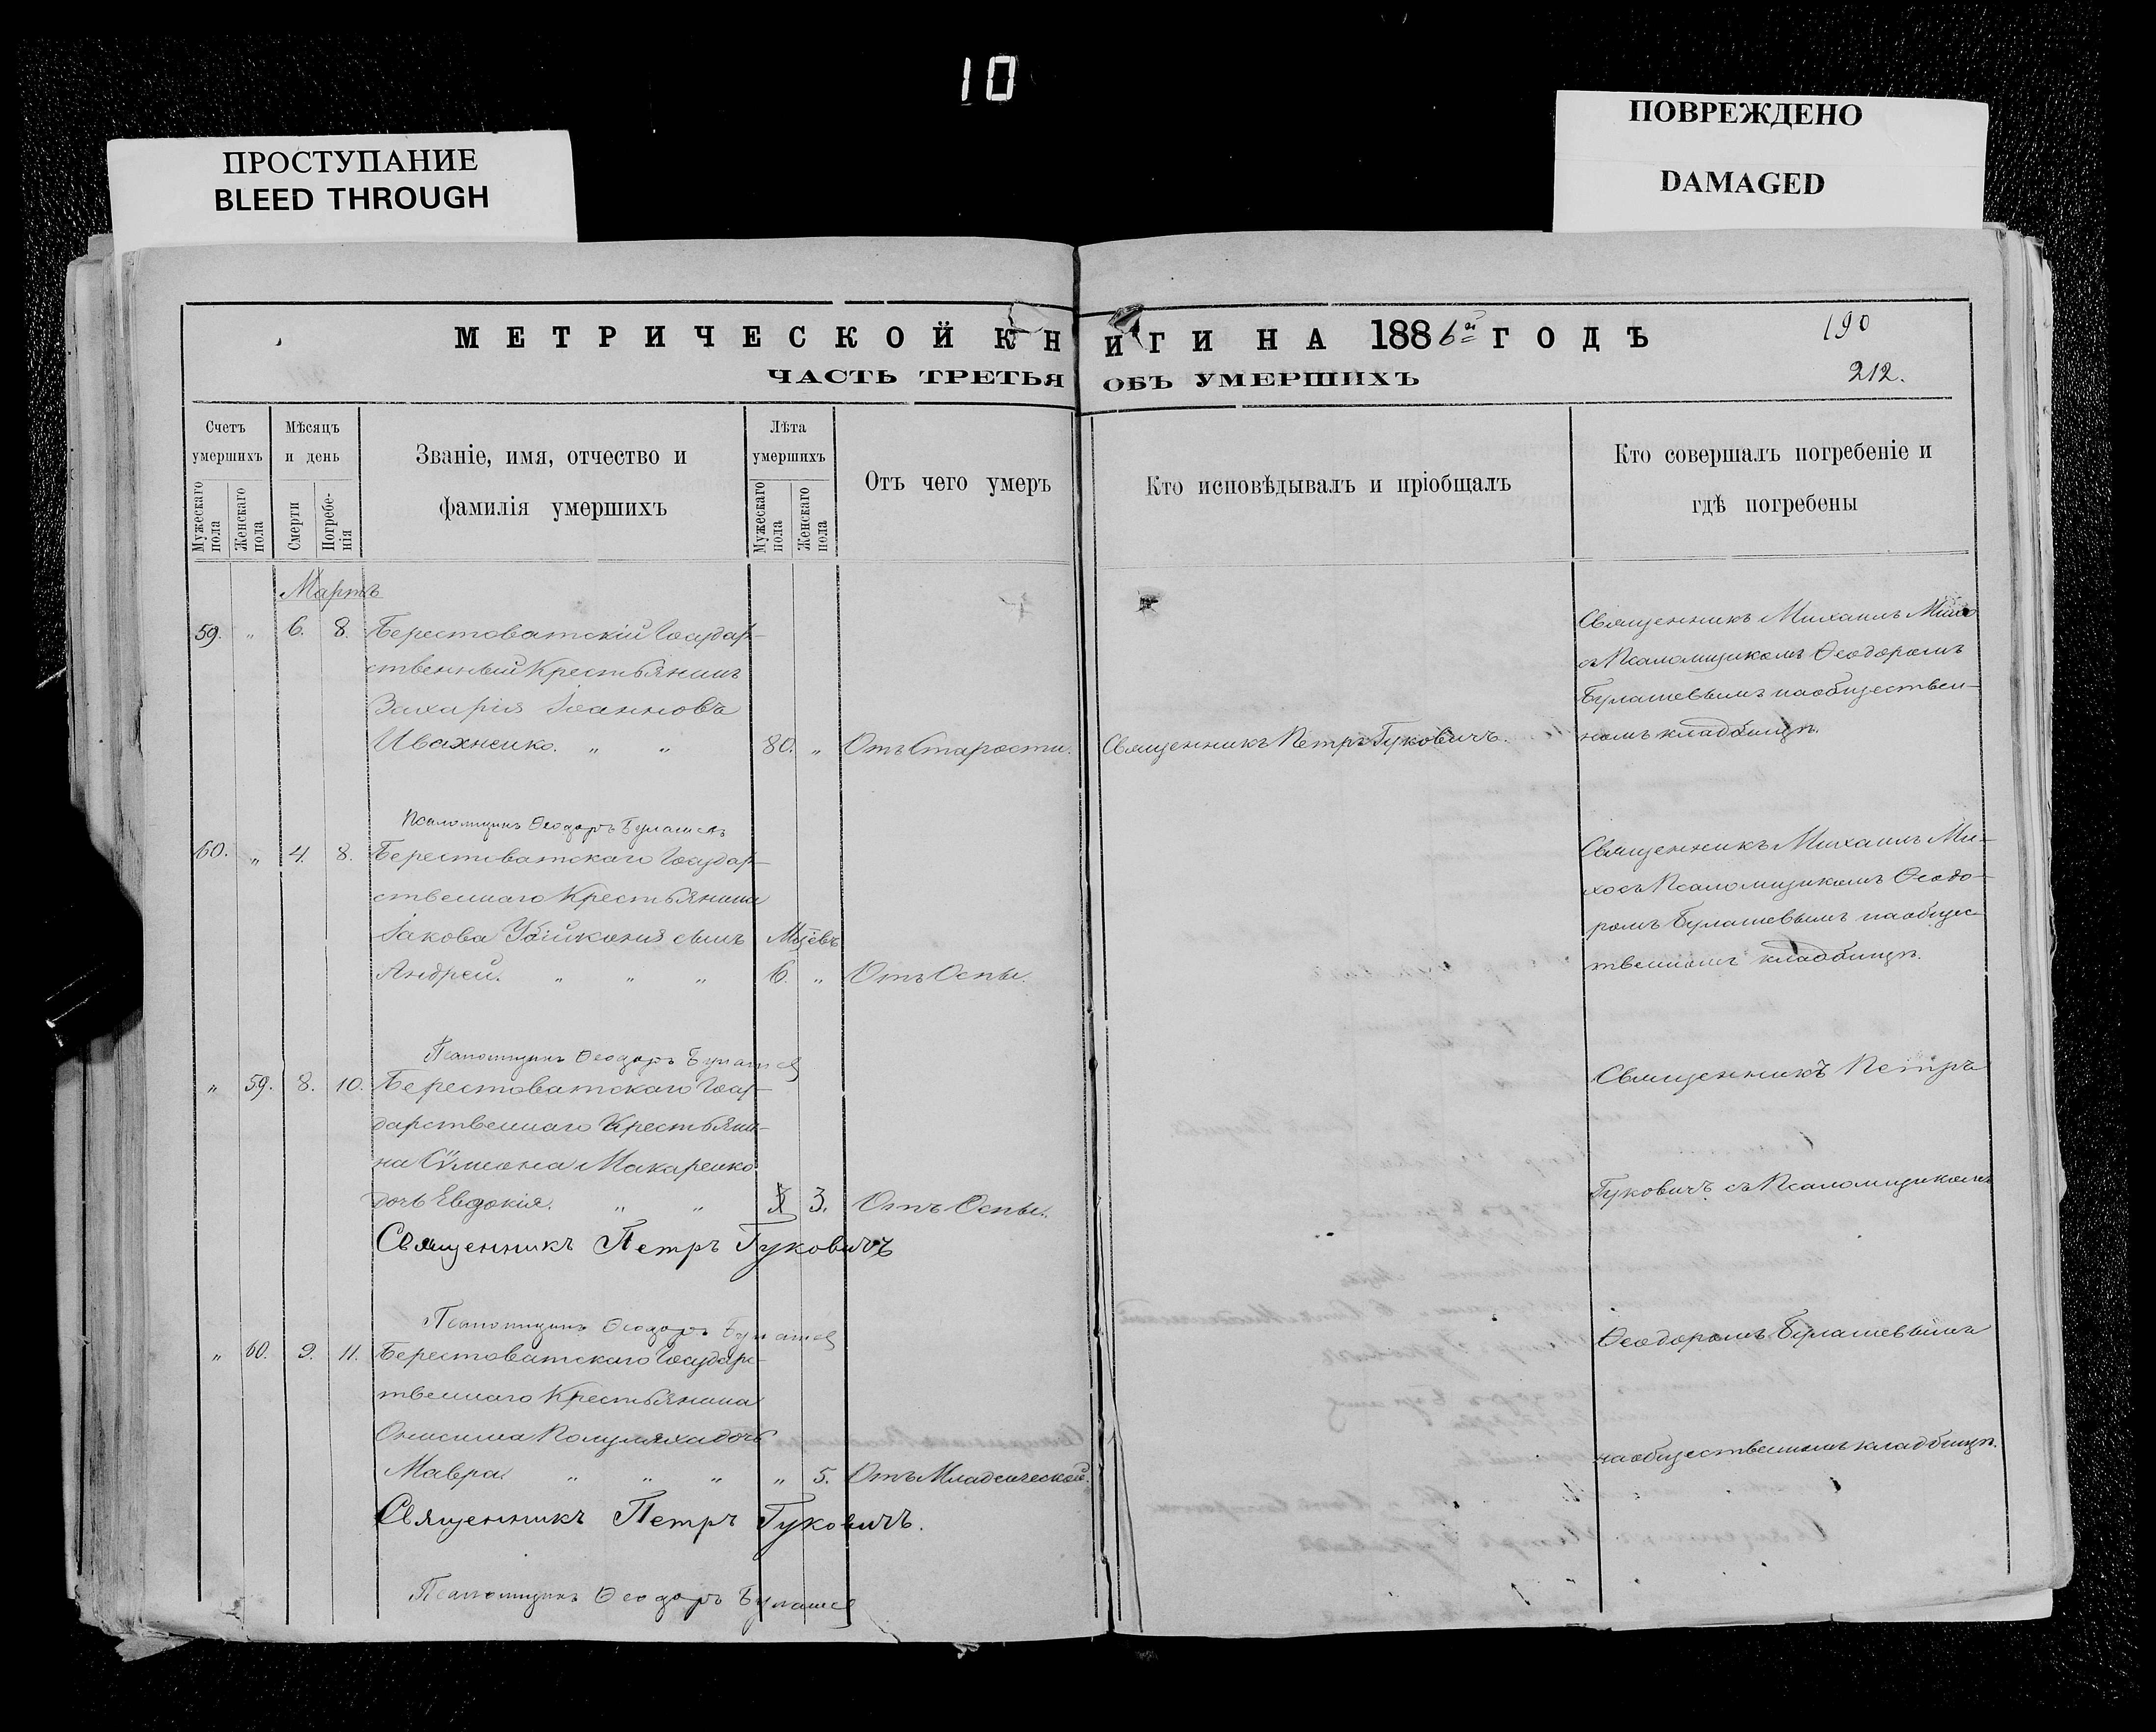 10
ПРОСТУПАНИЕ
BLEED THROUGH
ПОВРЕЖДЕНО
DAMAGED
МЕТРИЧЕСКОЙ КНИГИ НА 1886й ГОДЪ
190
ЧАСТЬ ТРЕТЬЯ ОБЪ УМЕРШИХЪ
212.
Счетъ умершихъ
Мужескаго пола
Женскаго пола
Мѣсяцъ и день
Смерти
Погребенія
Званіе, имя, отчество и фамилія умершихъ
Лѣта умершихъ
Мужескаго пола
Женскаго пола
Отъ чего умеръ
Кто исповѣдывалъ и пріобщалъ
Кто совершалъ погребеніе и гдѣ погребены
Мартъ
59. " 6. 8. Берестоватскій Государ-
ственный Крестьянинъ
Захарія Іоанновъ
Ивахненко. " " 80. " Отъ Старости. Священникъ Петръ Гуковичъ.
Священникъ Михаилъ
съ Псаломщикомъ Ѳеодоромъ
Булашевымъ на обществен-
номъ кладбищѣ.
Псаломщикъ Ѳеодоръ Булашев
60. " 4. 8. Берестоватскаго Государ-
ственнаго Крестьянина
Іакова сынъ Мцевъ
Андрей. " " " 6. " Отъ Оспы.
Священникъ Михаилъ Ми-
хо съ Псаломщикомъ Ѳеодо-
ромъ Булашевымъ на общес-
твенномъ кладбищѣ.
Псаломщикъ Ѳеодоръ Булашев
" 59. 8. 10. Берестоватскаго Госу-
дарственнаго Крестьяни-
на Сѵмеона Макаренко
дочь Евдокія. " " 3. Отъ Оспы.
Священникъ Петръ Гуковичъ
Священникъ Петръ
Гуковичъ съ Псаломщикомъ
Псаломщикъ Ѳеодоръ Булашев
" 60. 9. 11. Берестоватскаго Государс-
твеннаго Крестьянина
Онисима Полуляха дочь
Мавра. " " " " 5. Отъ Младенческой.
Священникъ Петръ Гуковичъ.
Ѳеодоромъ Булашевымъ
на общественномъ кладбищѣ.
Псаломщикъ Ѳеодоръ Булашев